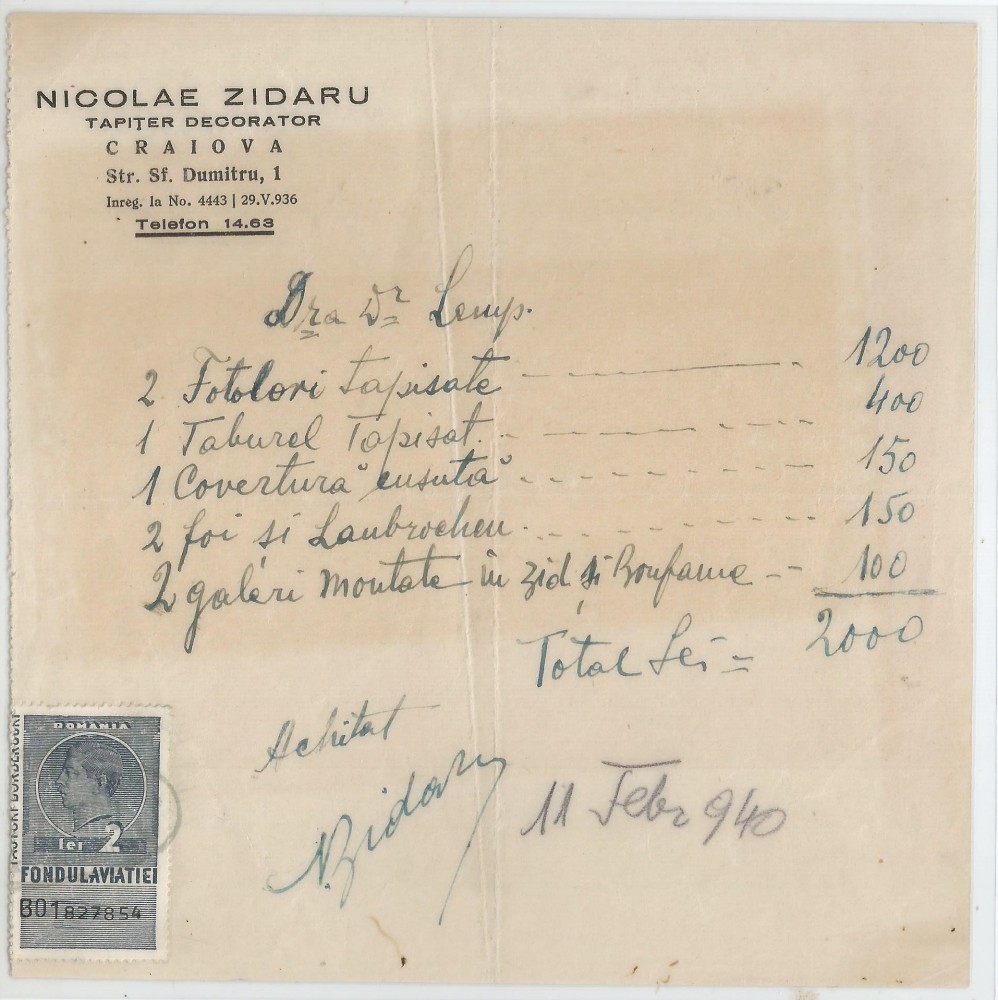 NICOLAE ZIDARU
TAPIȚER DECORATOR
CRAIOVA
Str. Sf. Dumitru, 1
Inreg. la No. 4443 | 29.V.936
Telefon 14.63
Dra Dr Lemp.
2 Fotolori tapisate 1200
1 Taburel Tapisat. 400
1 Covertură cusută 150
2 foi și Lambrocheu 150
2 galeri montate în zid și 100
Total Lei = 2000
Achitat
N. Zidaru
11 Febr 940
ROMANIA
lei 2
FONDUL AVIATIEI
301827854